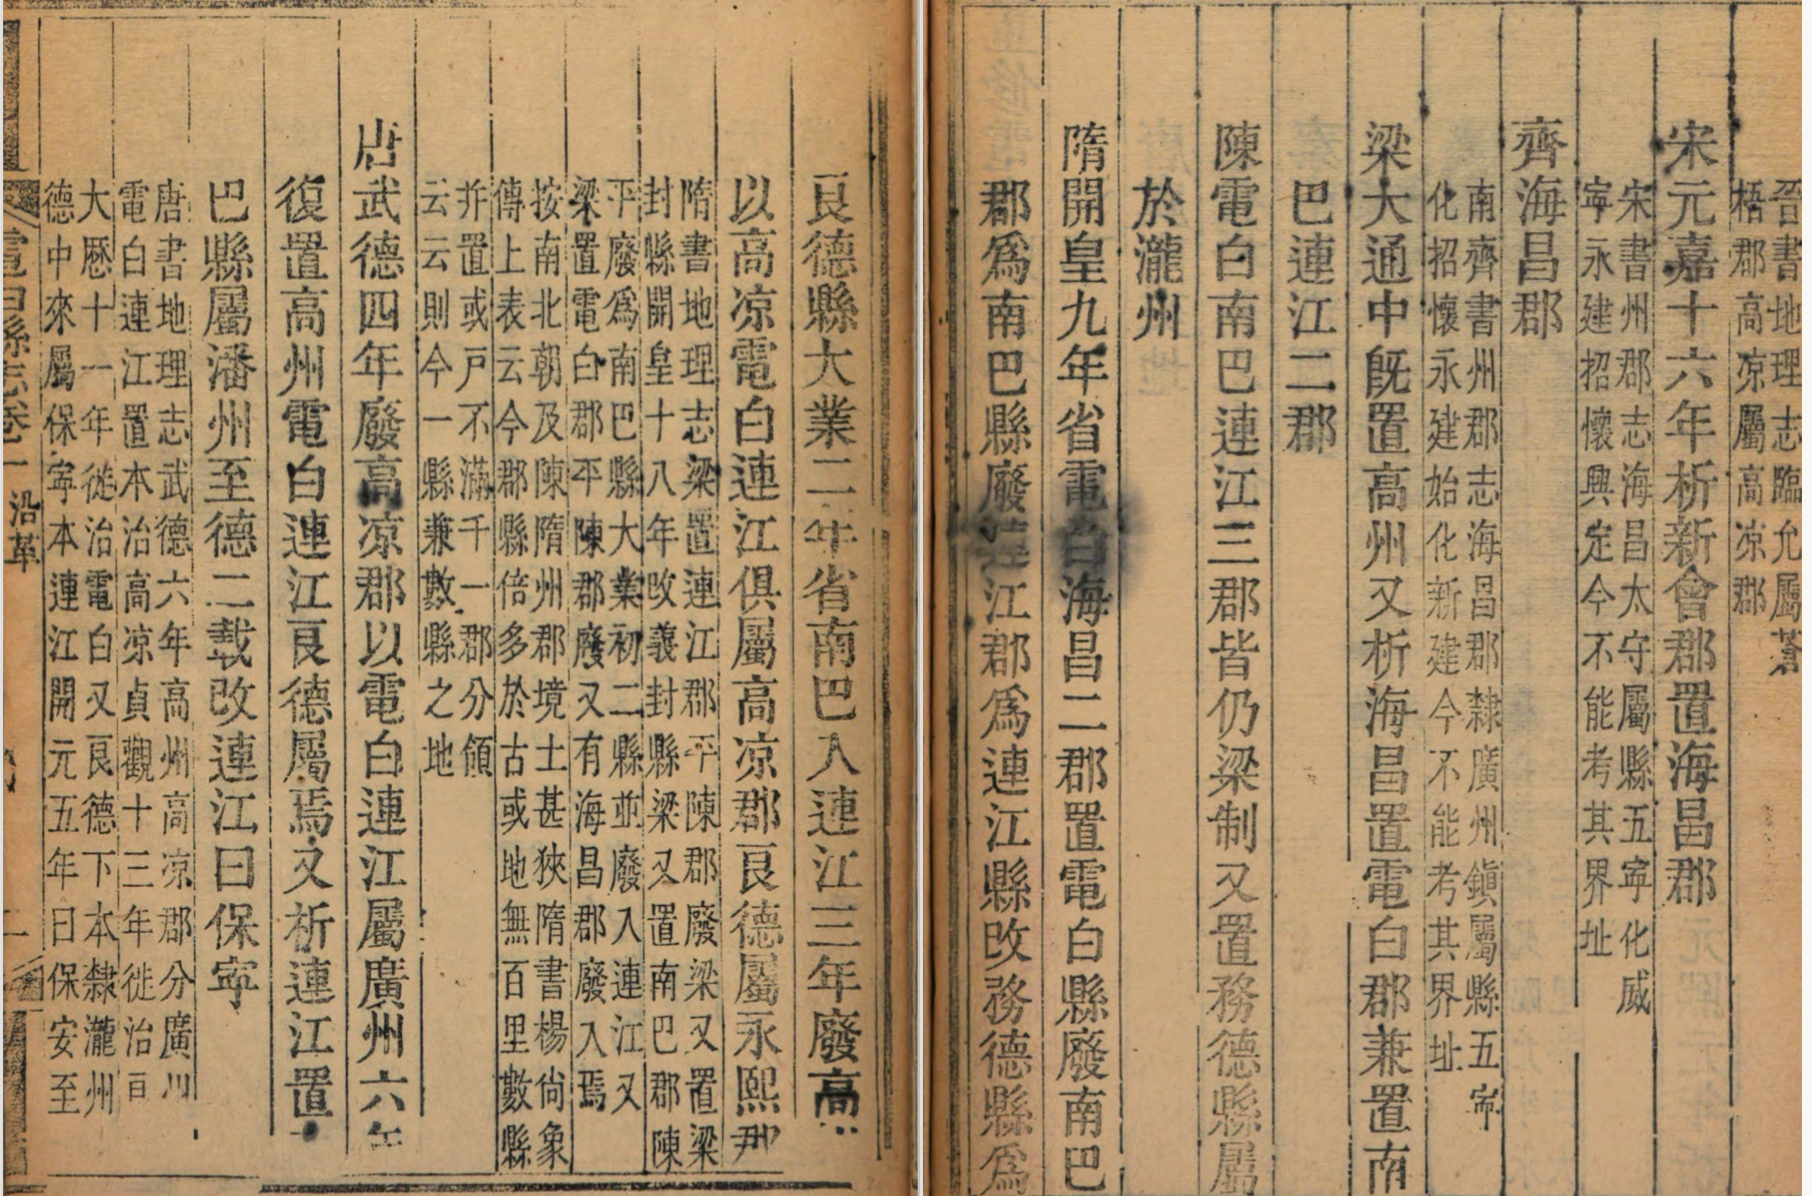 晉書地理志臨允屬蒼
梧郡高凉屬高凉郡
宋元嘉十六年析新會郡置海昌郡
宋書州郡志海昌太守屬縣五寧化威
寧永建招懷興定今不能考其界址
齊海昌郡
南齊書州郡志海昌郡隸廣州鎭屬縣五寧
化招懷永建始化新建今不能考其界址
梁大通中旣置高州又析海昌置電白郡兼置南
巴連江二郡
陳電白南巴連江三郡皆仍梁制又置務德縣屬
於瀧州
隋開皇九年省電白海昌二郡置電白縣廢南巴
郡爲南巴縣廢連江郡爲連江縣改務德縣爲
良德縣大業二年省南巴入連江三年廢高
以高凉電白連江俱屬高凉郡良德屬永熙郡
隋書地理志梁置連江郡平陳郡廢梁又置梁
封縣開皇十八年改義封縣梁又置南巴郡陳
平廢爲南巴縣大業初二縣並廢入連江又
梁置電白郡平陳郡廢又有海昌郡廢入焉
按南北朝及陳隋州郡境土甚狹隋書楊尙象
傳上表云今郡縣倍多於古或地無百里數縣
幷置或戸不滿千一郡分領
云云則今一縣兼數縣之地
唐武德四年廢高凉郡以電白連江屬廣州六年
復置高州電白連江良德屬焉又析連江置
巴縣屬潘州至德二載改連江曰保寧
唐書地理志武德六年高州高凉郡分廣州
電白連江置本治高凉貞觀十三年徙治
大曆十一年徙治電白又良德下本隸瀧州
德中來屬保寧本連江開元五年曰保安至
電白縣志卷一
沿革
二